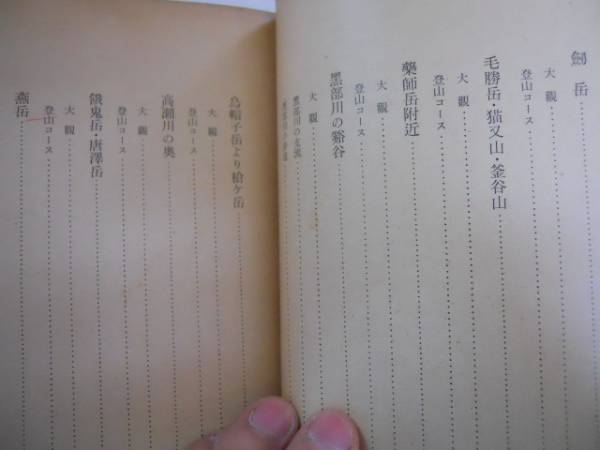 劍岳
大觀
登山コース
毛勝岳・猫又山・釜谷山
大觀
登山コース
藥師岳附近
大觀
登山コース
黑部川の谿谷
大觀
黑部川の支流
烏帽子岳より槍ヶ岳
大觀
登山コース
高瀬川の奥
大觀
登山コース
餓鬼岳・唐澤岳
大觀
登山コース
燕岳